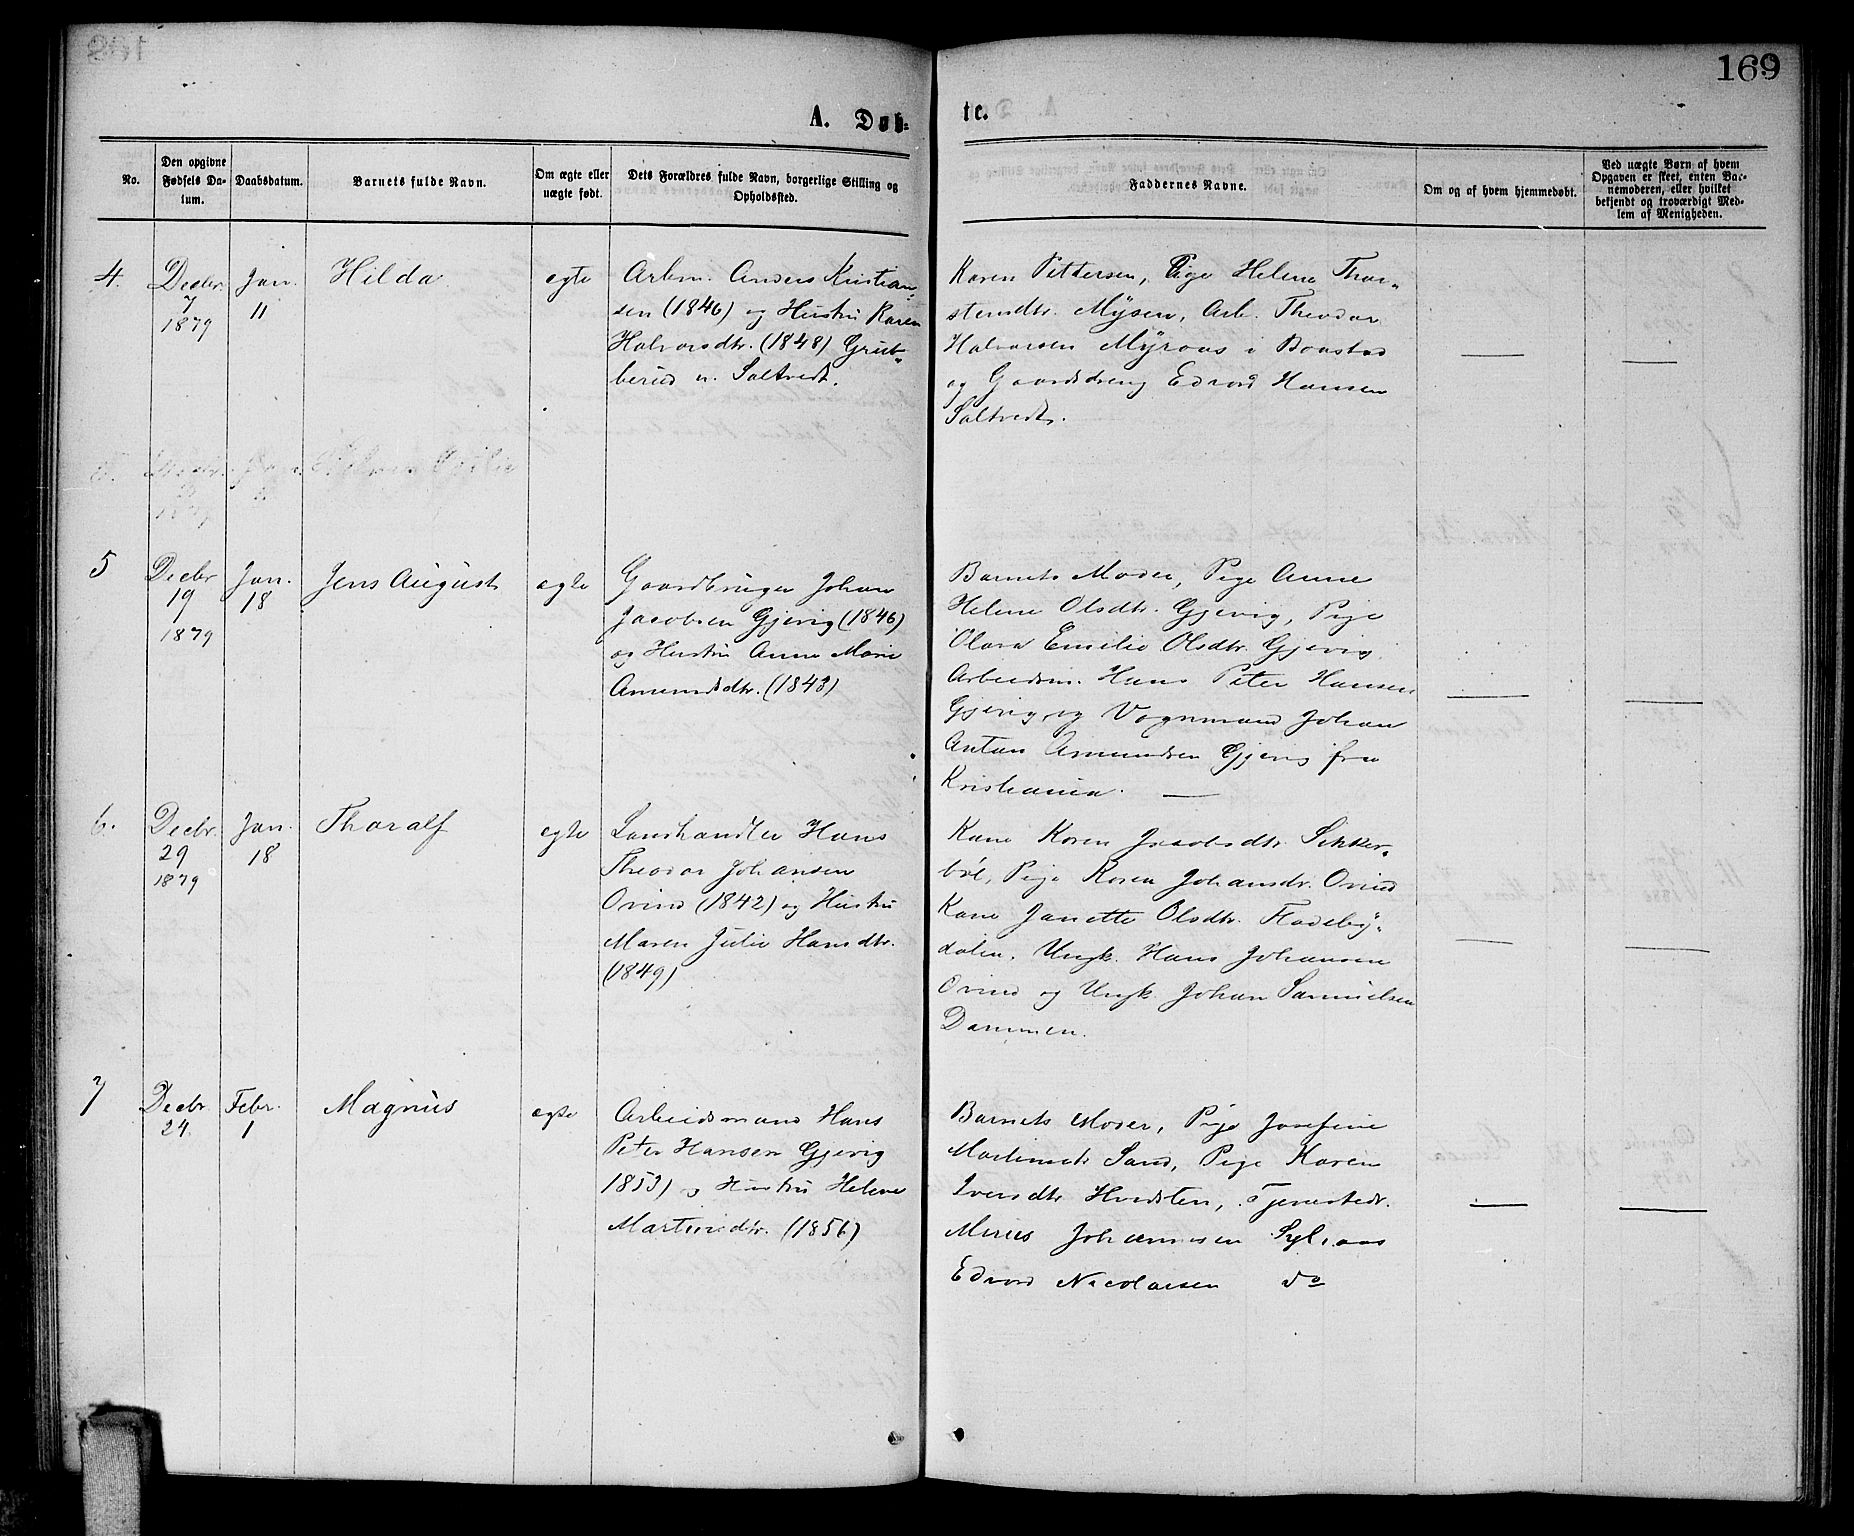 169
A. Døb=
te.
No.
Den opgivne Fødsels Da-tum.
Daabsdatum.
Barnets fulde Navn.
Om ægte eller uægte født.
Dets Forældres fulde Navn, borgerlige Stilling og Opholdssted.
Faddernes Navne.
Om og af hvem hjemmedøbt.
Ved uægte Børn af hvem Opgaven er skeet, enten Bar-nemoderen, eller hvilket bekjendt og troværdigt Med-lem af Menigheden.
4.
Decbr.
7
1879
Jan.
11
Hilda
egte
Arbm. Anders Kristian-
sen (1846) og Hustru Karen
Halvorsdtr. (1848) Grut-
berud u. Saltvedt.
Karen Pettersen, Pige Helene Thor-
stensdtr. Mysen, Arb. Theodor
Halvorsen Myraas i Baastad
og Gaardsdreng Edvard Hansen
Saltvedt.
5
Decbr
19
1879
Jan.
18
Jens August
egte
Gaardbruger Johan
Jacobsen Gjevig (1846)
og Hustru Anne Marie
Amundsdtr. (1843)
Barnets Moder, Pige Anne
Helene Olsdtr. Gjevig, Pige
Olava Emilie Olsdtr. Gjevig
Arbeidsm. Hans Peter Hansen
Gjevig, og Vognmand Johan
Anton Amundsen Gjevig fra
Kristiania.
6.
Decbr.
29
1879
Jan.
18
Tharalf
egte
Landhandler Hans
Theodor Johansen
Ovind (1842) og Hustru
Maren Julie Hansdtr.
(1849)
Kone Karen Jacobsdtr. Sikker-
böl, Pige Karen Johansdr. Ovind
Kone Janette Olsdtr. Fladeby-
dalen, Ungk. Hans Johansen
Ovind og Ungk. Johan Samuelsen
Dammen.
7
Decbr
24
Febr.
1
Magnus
egte
Arbeidsmand Hans
Peter Hansen Gjevig
1853) og Hustru Helene
Martinsdtr. (1856)
Barnets Moder, Pige Josefine
Martinsdtr Sand, Pige Karen
Iversdtr Hvidsten, Tjenestedr.
Johannesen
Edvard Nicolaisen do